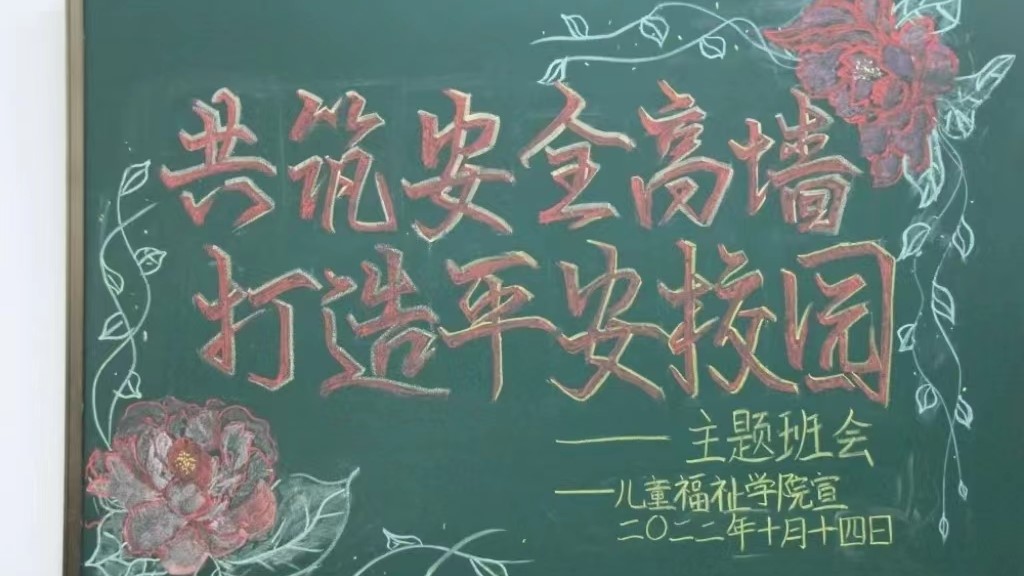 共筑安全高墙
打造平安校园
——主题班会
——儿童福祉学院宣
二〇二二年十月十四日